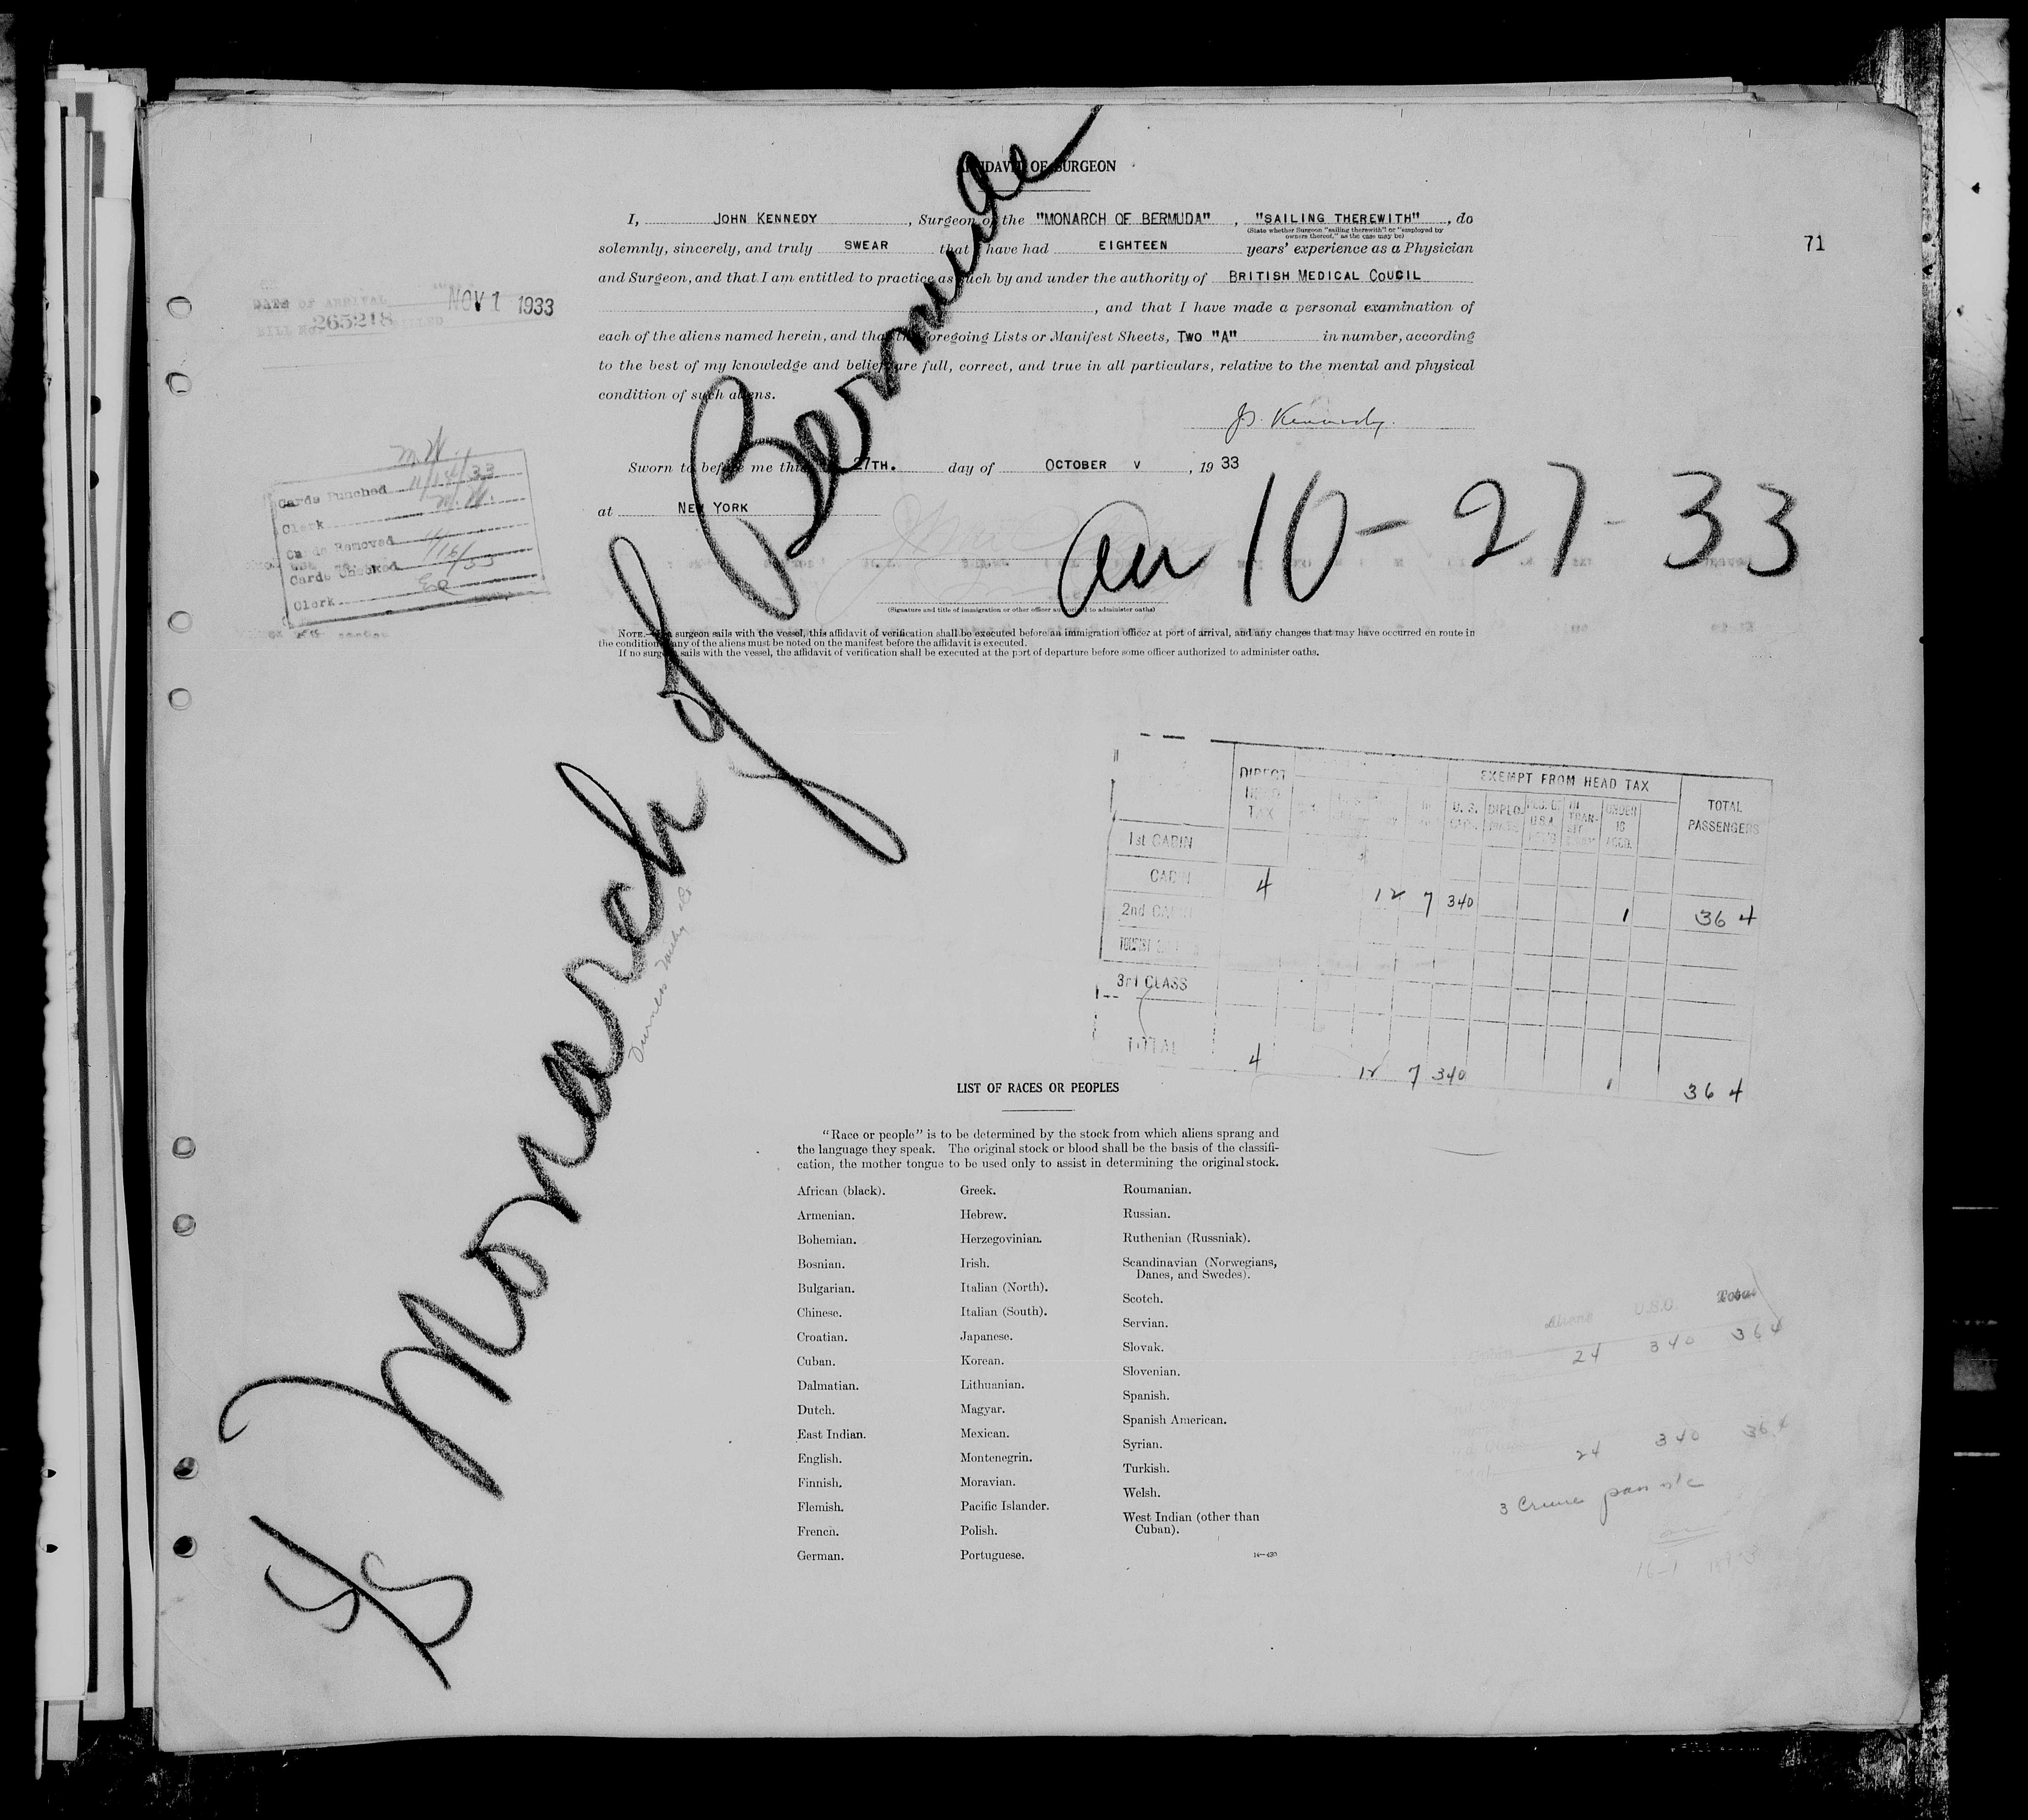 AFFIDAVIT OF SURGEON
I, JOHN KENNEDY, Surgeon of the "MONARCH OF BERMUDA", "SAILING THEREWITH", do
(State whether Surgeon "sailing therewith" or "employed by owners thereof," as the case may be)
solemnly, sincerely, and truly SWEAR that I have had EIGHTEEN years' experience as a Physician
71
and Surgeon, and that I am entitled to practice as such by and under the authority of BRITISH MEDICAL COUCIL
, and that I have made a personal examination of
DATE OF ARRIVAL NOV 1 1933
BILL No 265218
each of the aliens named herein, and that the foregoing Lists or Manifest Sheets, TWO "A" in number, according
to the best of my knowledge and belief, are full, correct, and true in all particulars, relative to the mental and physical
condition of such aliens.
J. Kennedy.
Sworn to before me this 27TH. day of OCTOBER V, 19 33
at NEW YORK
M.W.
Cards Punched 11/14/33
Clerk M.W.
Cards Removed
Cards Checked 11/16/33
Clerk
arr 10-27-33
(Signature and title of immigration or other officer authorized to administer oaths)
NOTE.—If a surgeon sails with the vessel, this affidavit of verification shall be executed before an immigration officer at port of arrival, and any changes that may have occurred en route in
the condition of any of the aliens must be noted on the manifest before the affidavit is executed.
If no surgeon sails with the vessel, the affidavit of verification shall be executed at the port of departure before some officer authorized to administer oaths.
SS Monarch of Bermuda
DIRECT HEAD TAX
EXEMPT FROM HEAD TAX
U.S. DIPLO- IN TRAN- UNDER 16 ACCD.
TOTAL PASSENGERS
1st CABIN
CABIN 4 12 7 340 1 364
2nd CABIN
TOURIST
3rd CLASS
TOTAL 4 12 7 340 1 364
LIST OF RACES OR PEOPLES
"Race or people" is to be determined by the stock from which aliens sprang and
the language they speak. The original stock or blood shall be the basis of the classifi-
cation, the mother tongue to be used only to assist in determining the original stock.
African (black).
Armenian.
Bohemian.
Bosnian.
Bulgarian.
Chinese.
Croatian.
Cuban.
Dalmatian.
Dutch.
East Indian.
English.
Finnish.
Flemish.
French.
German.
Greek.
Hebrew.
Herzegovinian.
Irish.
Italian (North).
Italian (South).
Japanese.
Korean.
Lithuanian.
Magyar.
Mexican.
Montenegrin.
Moravian.
Pacific Islander.
Polish.
Portuguese.
Roumanian.
Russian.
Ruthenian (Russniak).
Scandinavian (Norwegians,
Danes, and Swedes).
Scotch.
Servian.
Slovak.
Slovenian.
Spanish.
Spanish American.
Syrian.
Turkish.
Welsh.
West Indian (other than
Cuban).
Aliens U.S.C. Total
24 340 364
24 340 364
3 Cruise